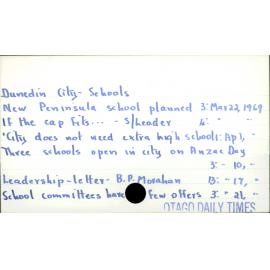 Dunedin City - Schools
New Peninsula school planned 3: Mar 22, 1969
If the cap fits... - s/leader 4: " "
'City does not need extra high schools: Ap 1, "
Three schools open in city on Anzac Day
3: - 10, -
Leadership - letter - B.P. Monahan 13: " 17, "
School committees have few offers 3: " 21, "
OTAGO DAILY TIMES